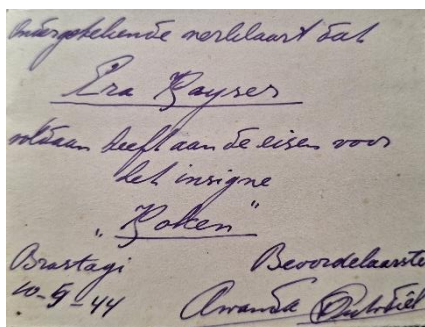 Ondergetekende verklaart dat
Era Kayser
voldaan heeft aan de eisen voor
het insigne
„Koken”
Brastagi Beoordelaarste
10-5-44 Awanda